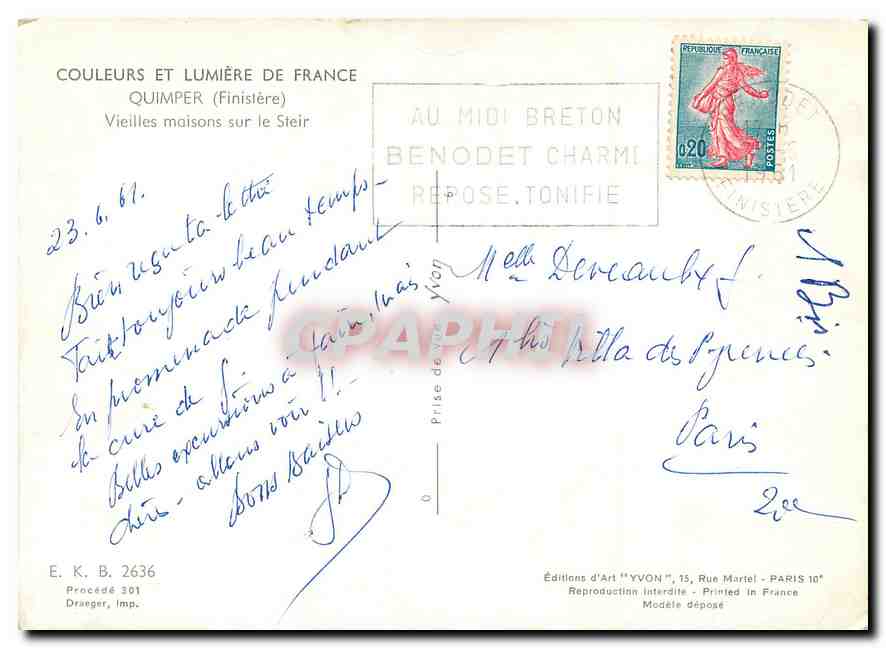 COULEURS ET LUMIÈRE DE FRANCE
QUIMPER (Finistère)
Vieilles maisons sur le Steir
23.6.61.
Bien reçu ta lettre
Fait toujours beau temps-
En promenade pendant
la cure de G.
Belles excursions à faire, mais
chères - allons voir !! -
Bons Baisers
E. K. B. 2636
Procédé 301
Draeger, Imp.
Prise de vue Yvon
AU MIDI BRETON
BENODET CHARME
REPOSE, TONIFIE
REPUBLIQUE FRANÇAISE
0,20
POSTES
1961
FINISTERE
Melle
Villa des Pyrenées
Paris
20e
1 Bis
Éditions d'Art "YVON", 15, Rue Martel - PARIS 10e
Reproduction interdite - Printed in France
Modèle déposé
CPAPHIL